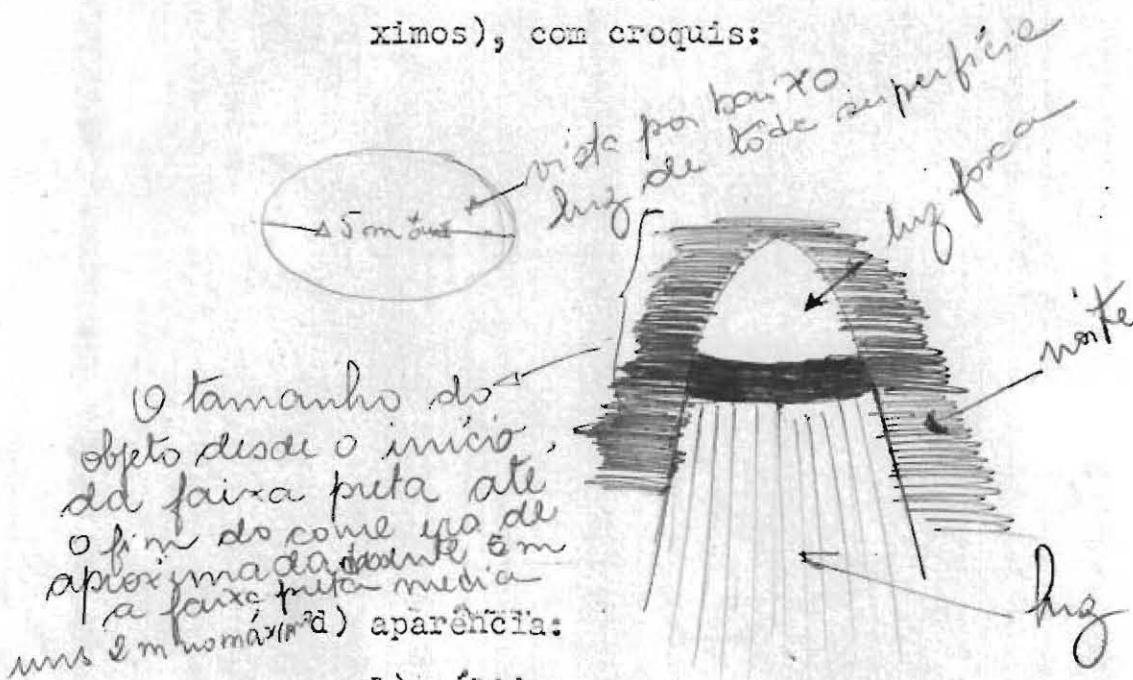 ximos), com croquis:
vista por baixo
luz de tôda superfície
luz fosca
5 m
noite
O tamanho do
objeto desde o início,
da faixa preta até
o fim do cone era de
aproximadamente 5 m
a faixa preta media
uns 2 m no máximo
luz
d) aparência: